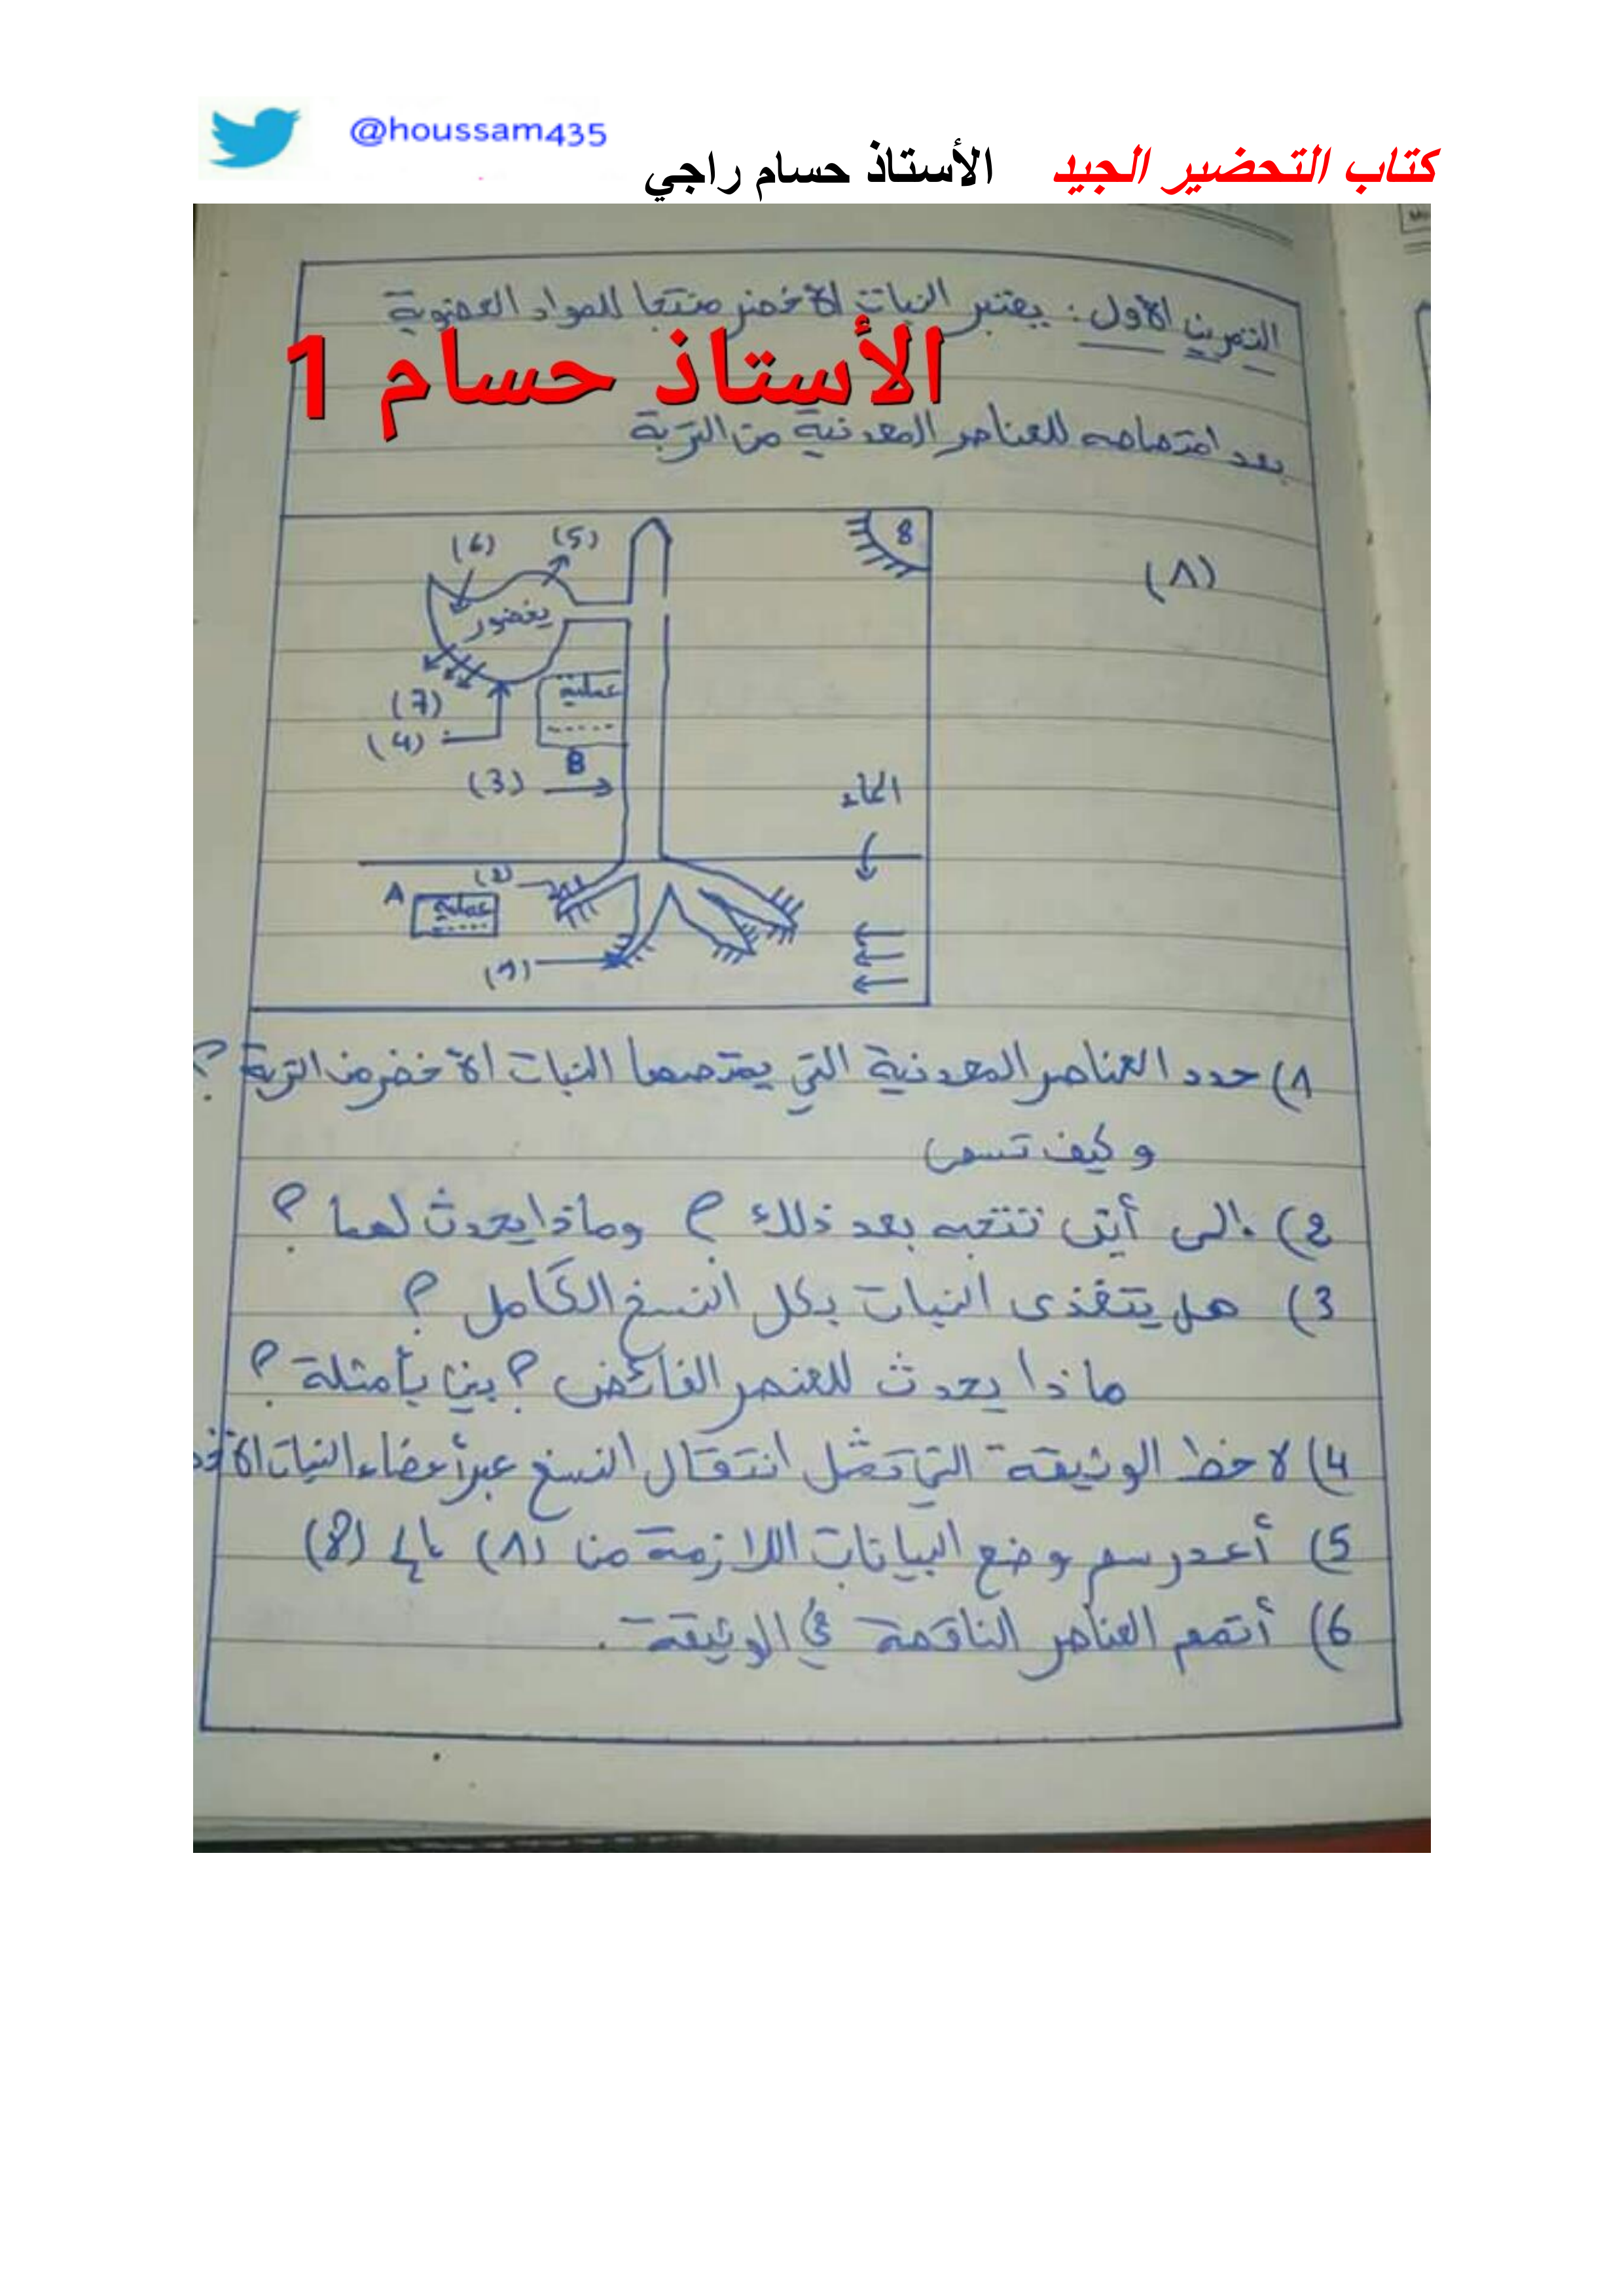 @houssam435
كتاب التحضير الجيد الأستاذ حسام راجي
التمرين الأول: يعتبر النبات الأخضر منتجا للمواد العضوية
الأستاذ حسام 1
بعد امتصاصه للعناصر المعدنية من التربة
(1)
8
(6) (5)
يخضور
(7)
(4)
عملية
.....
B
(3)
الماء
(2)
A
عملية
.....
(1)
1) حدد العناصر المعدنية التي يمتصها النبات الأخضر من التربة؟
و كيف تسمى
2) إلى أين تتجه بعد ذلك؟ وماذا يحدث لهما؟
3) هل يتغذى النبات بكل النسغ الكامل؟
ماذا يحدث للعنصر الفائض؟ بين بأمثلة؟
4) لاحظ الوثيقة التي تمثل انتقال النسغ عبر أعضاء النبات
5) أعد رسم وضع البيانات اللازمة من (1) إلى (8)
6) أتمم العناصر الناقصة في الوثيقة.